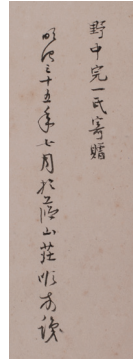 野中完一氏寄贈
明治三十五年七月於蘆山荘